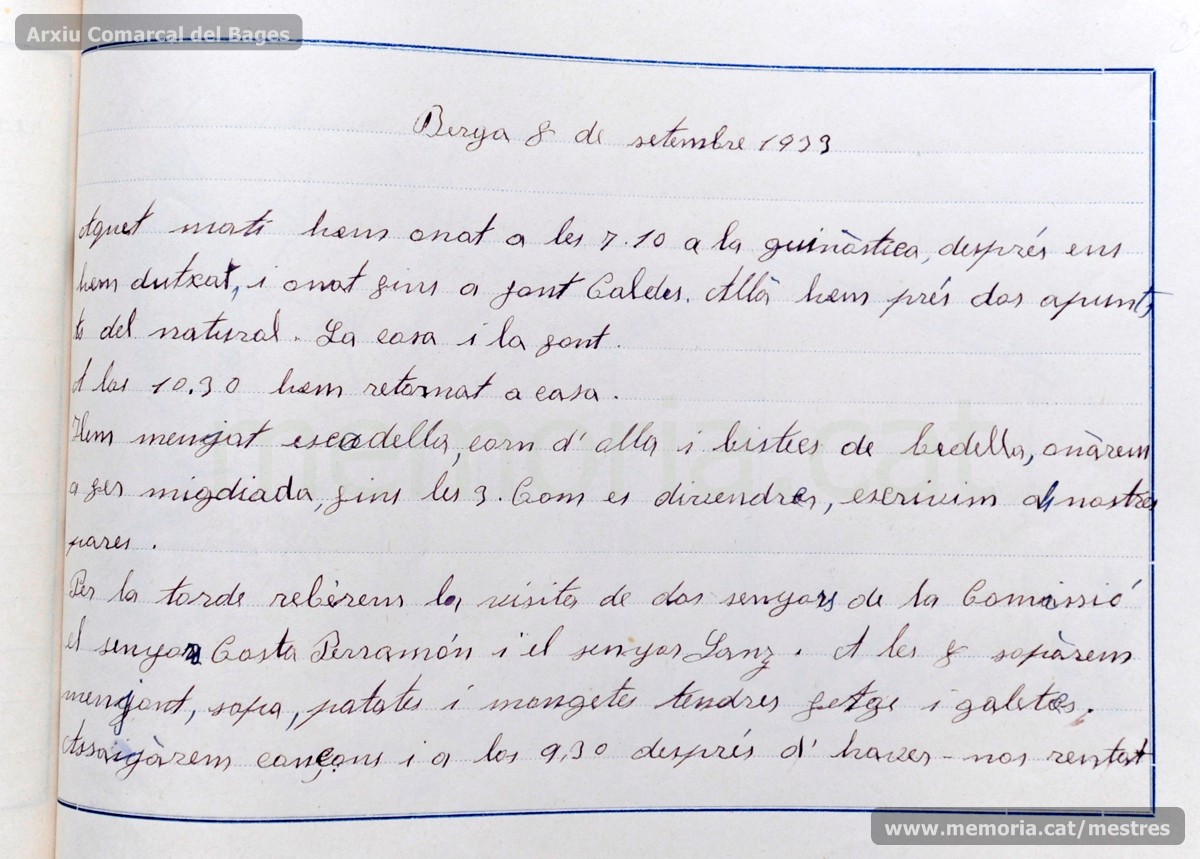 Arxiu Comarcal del Bages
Berga 8 de setembre 1933
Aquet matí hem anat a les 7.10 a la guinàstica, després ens
hem dutxat, i anat fins a font Caldes. Allà hem prés dos apunts
to del natural. La casa i la font.
A las 10.30 hem retornat a casa.
Hem menjat escodella, carn d'olla i bistecs de bedella, anàrem
a fer migdiada, fins les 3. Com es divendres, escrivim als nostres
pares.
Per la tarde rebèrem la visita de dos senyors de la Comissió
el senyor Costa Perramón i el senyor Sanz. A les 8 sopàrem
menjant, sopa, patates i mongetes tendres fetge i galetes.
Assaigàrem cançons i a las 9,30 després d'haver-nos rentat
memoria.cat
www.memoria.cat/mestres